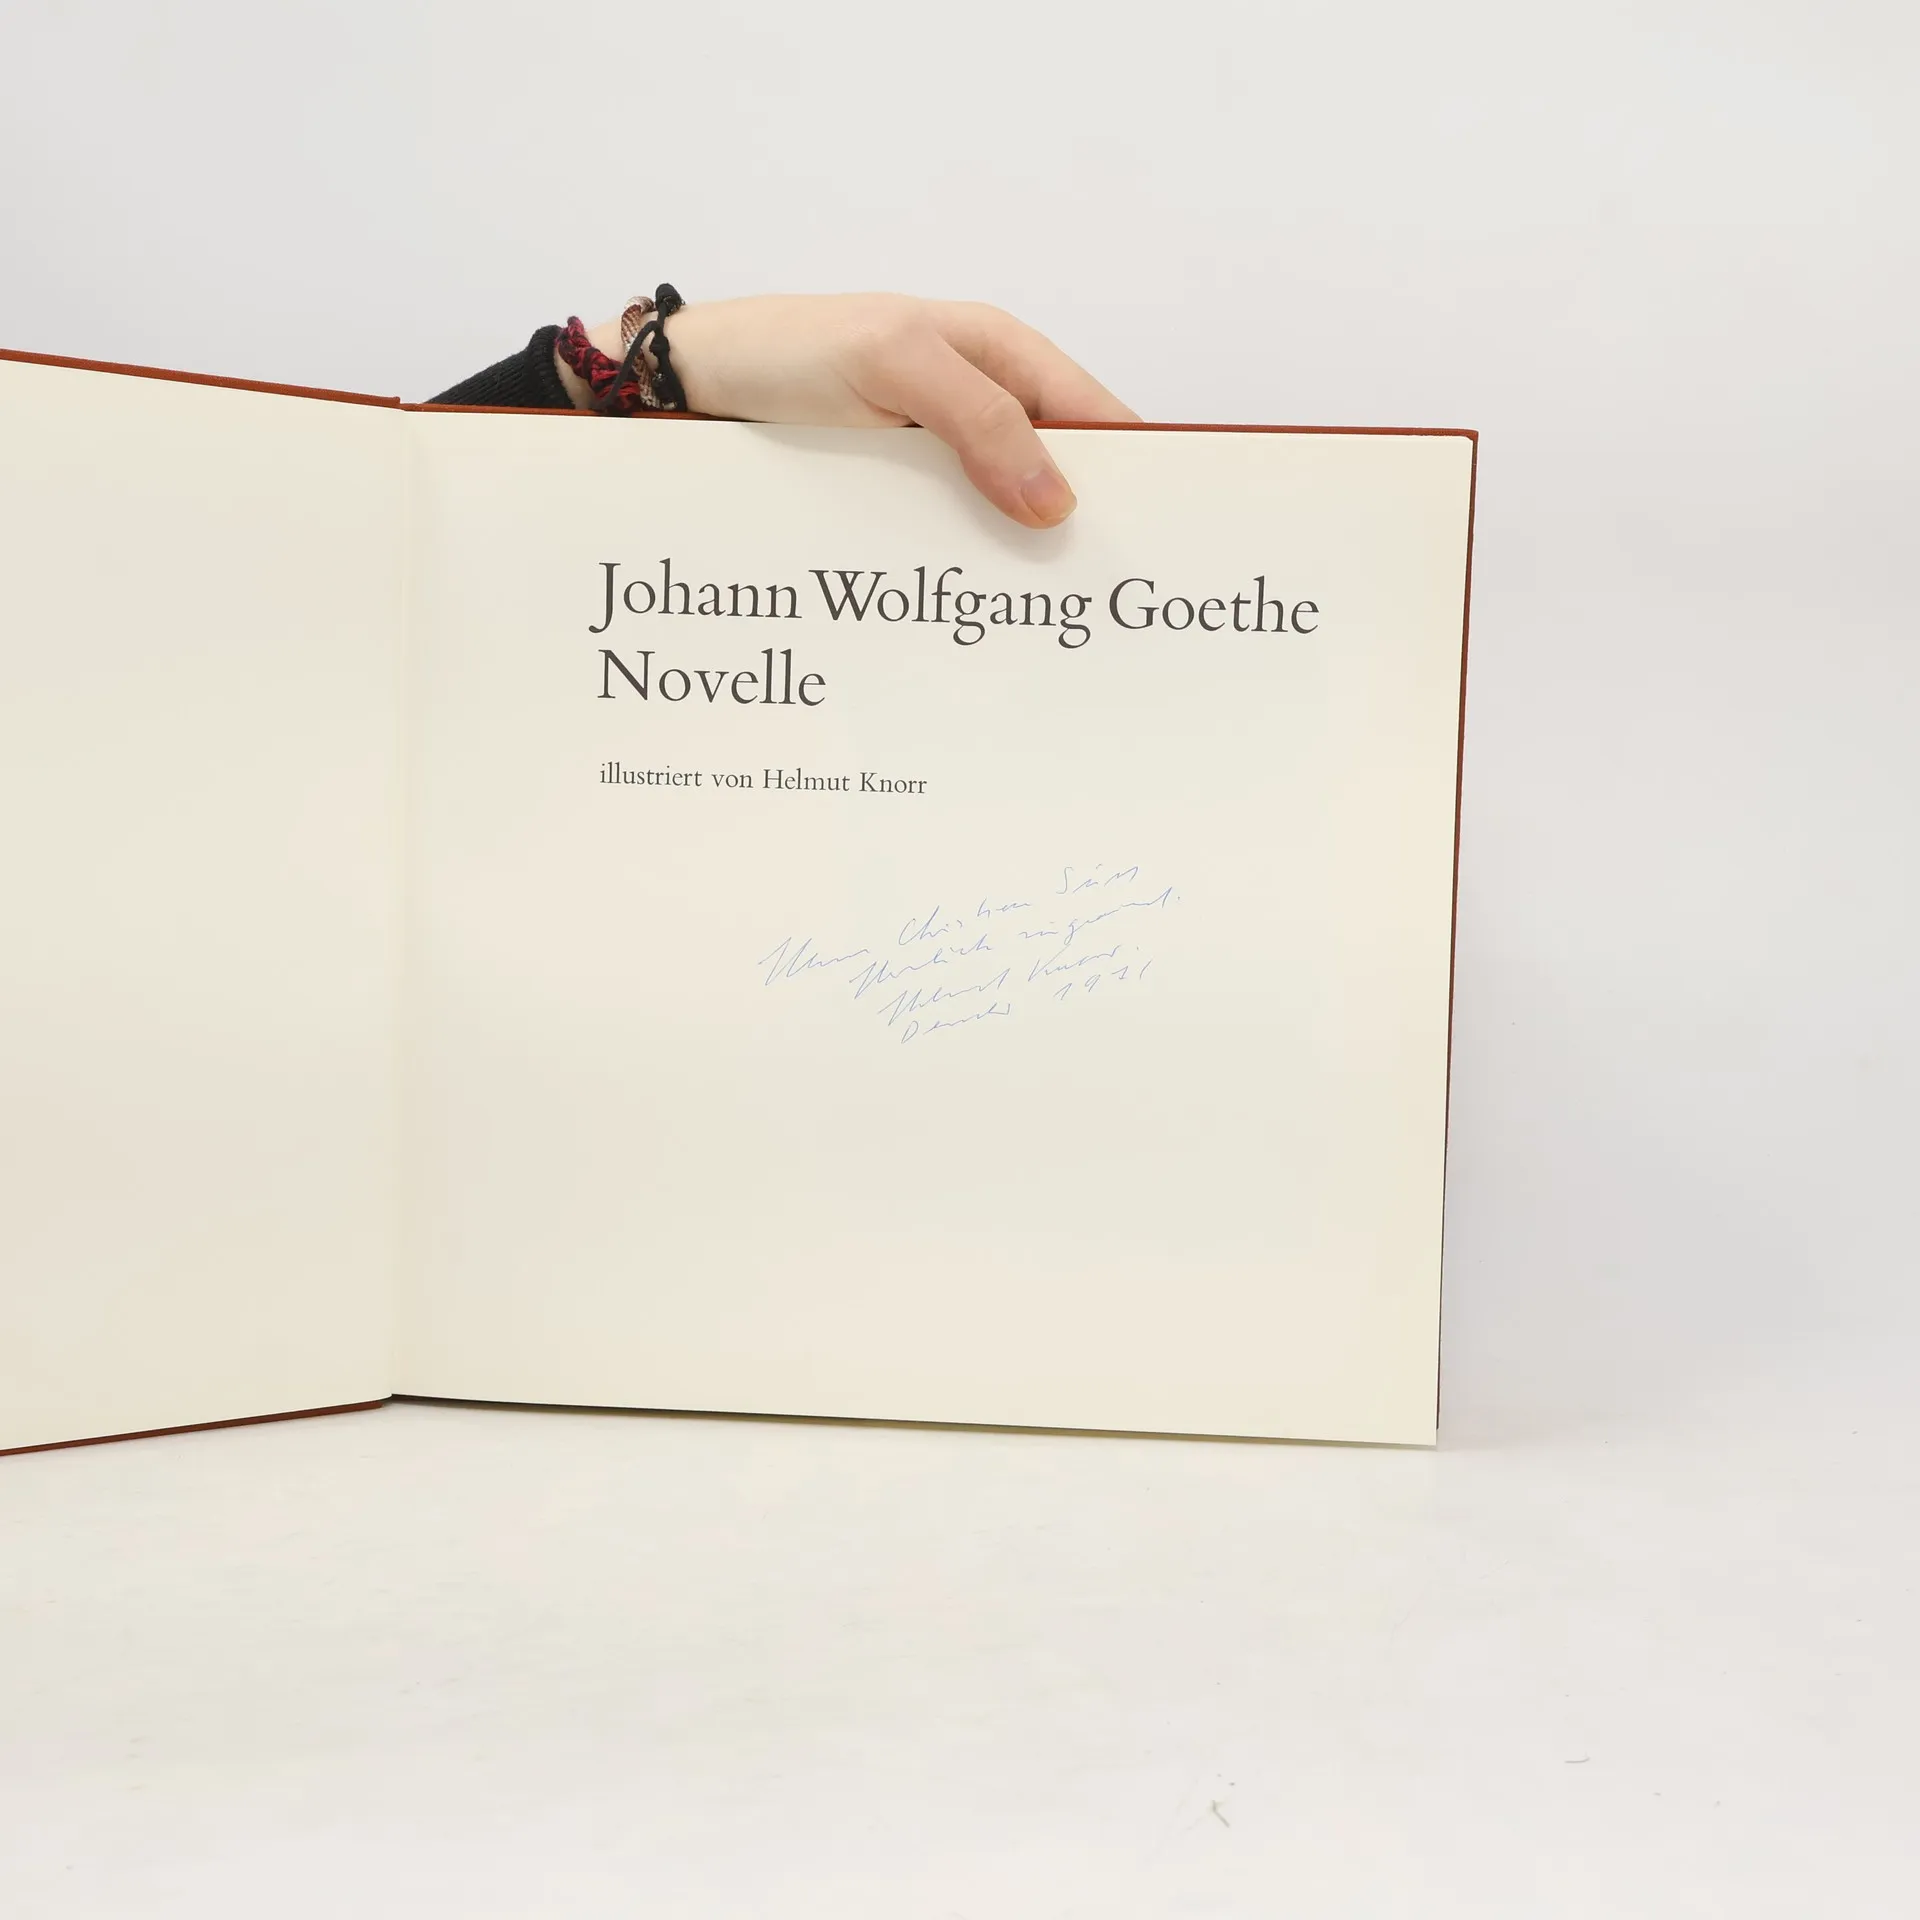 Johann Wolfgang Goethe
Novelle
illustriert von Helmut Knorr
Herrn Christian Süss
Herzlich zugeeignet.
Helmut Knorr.